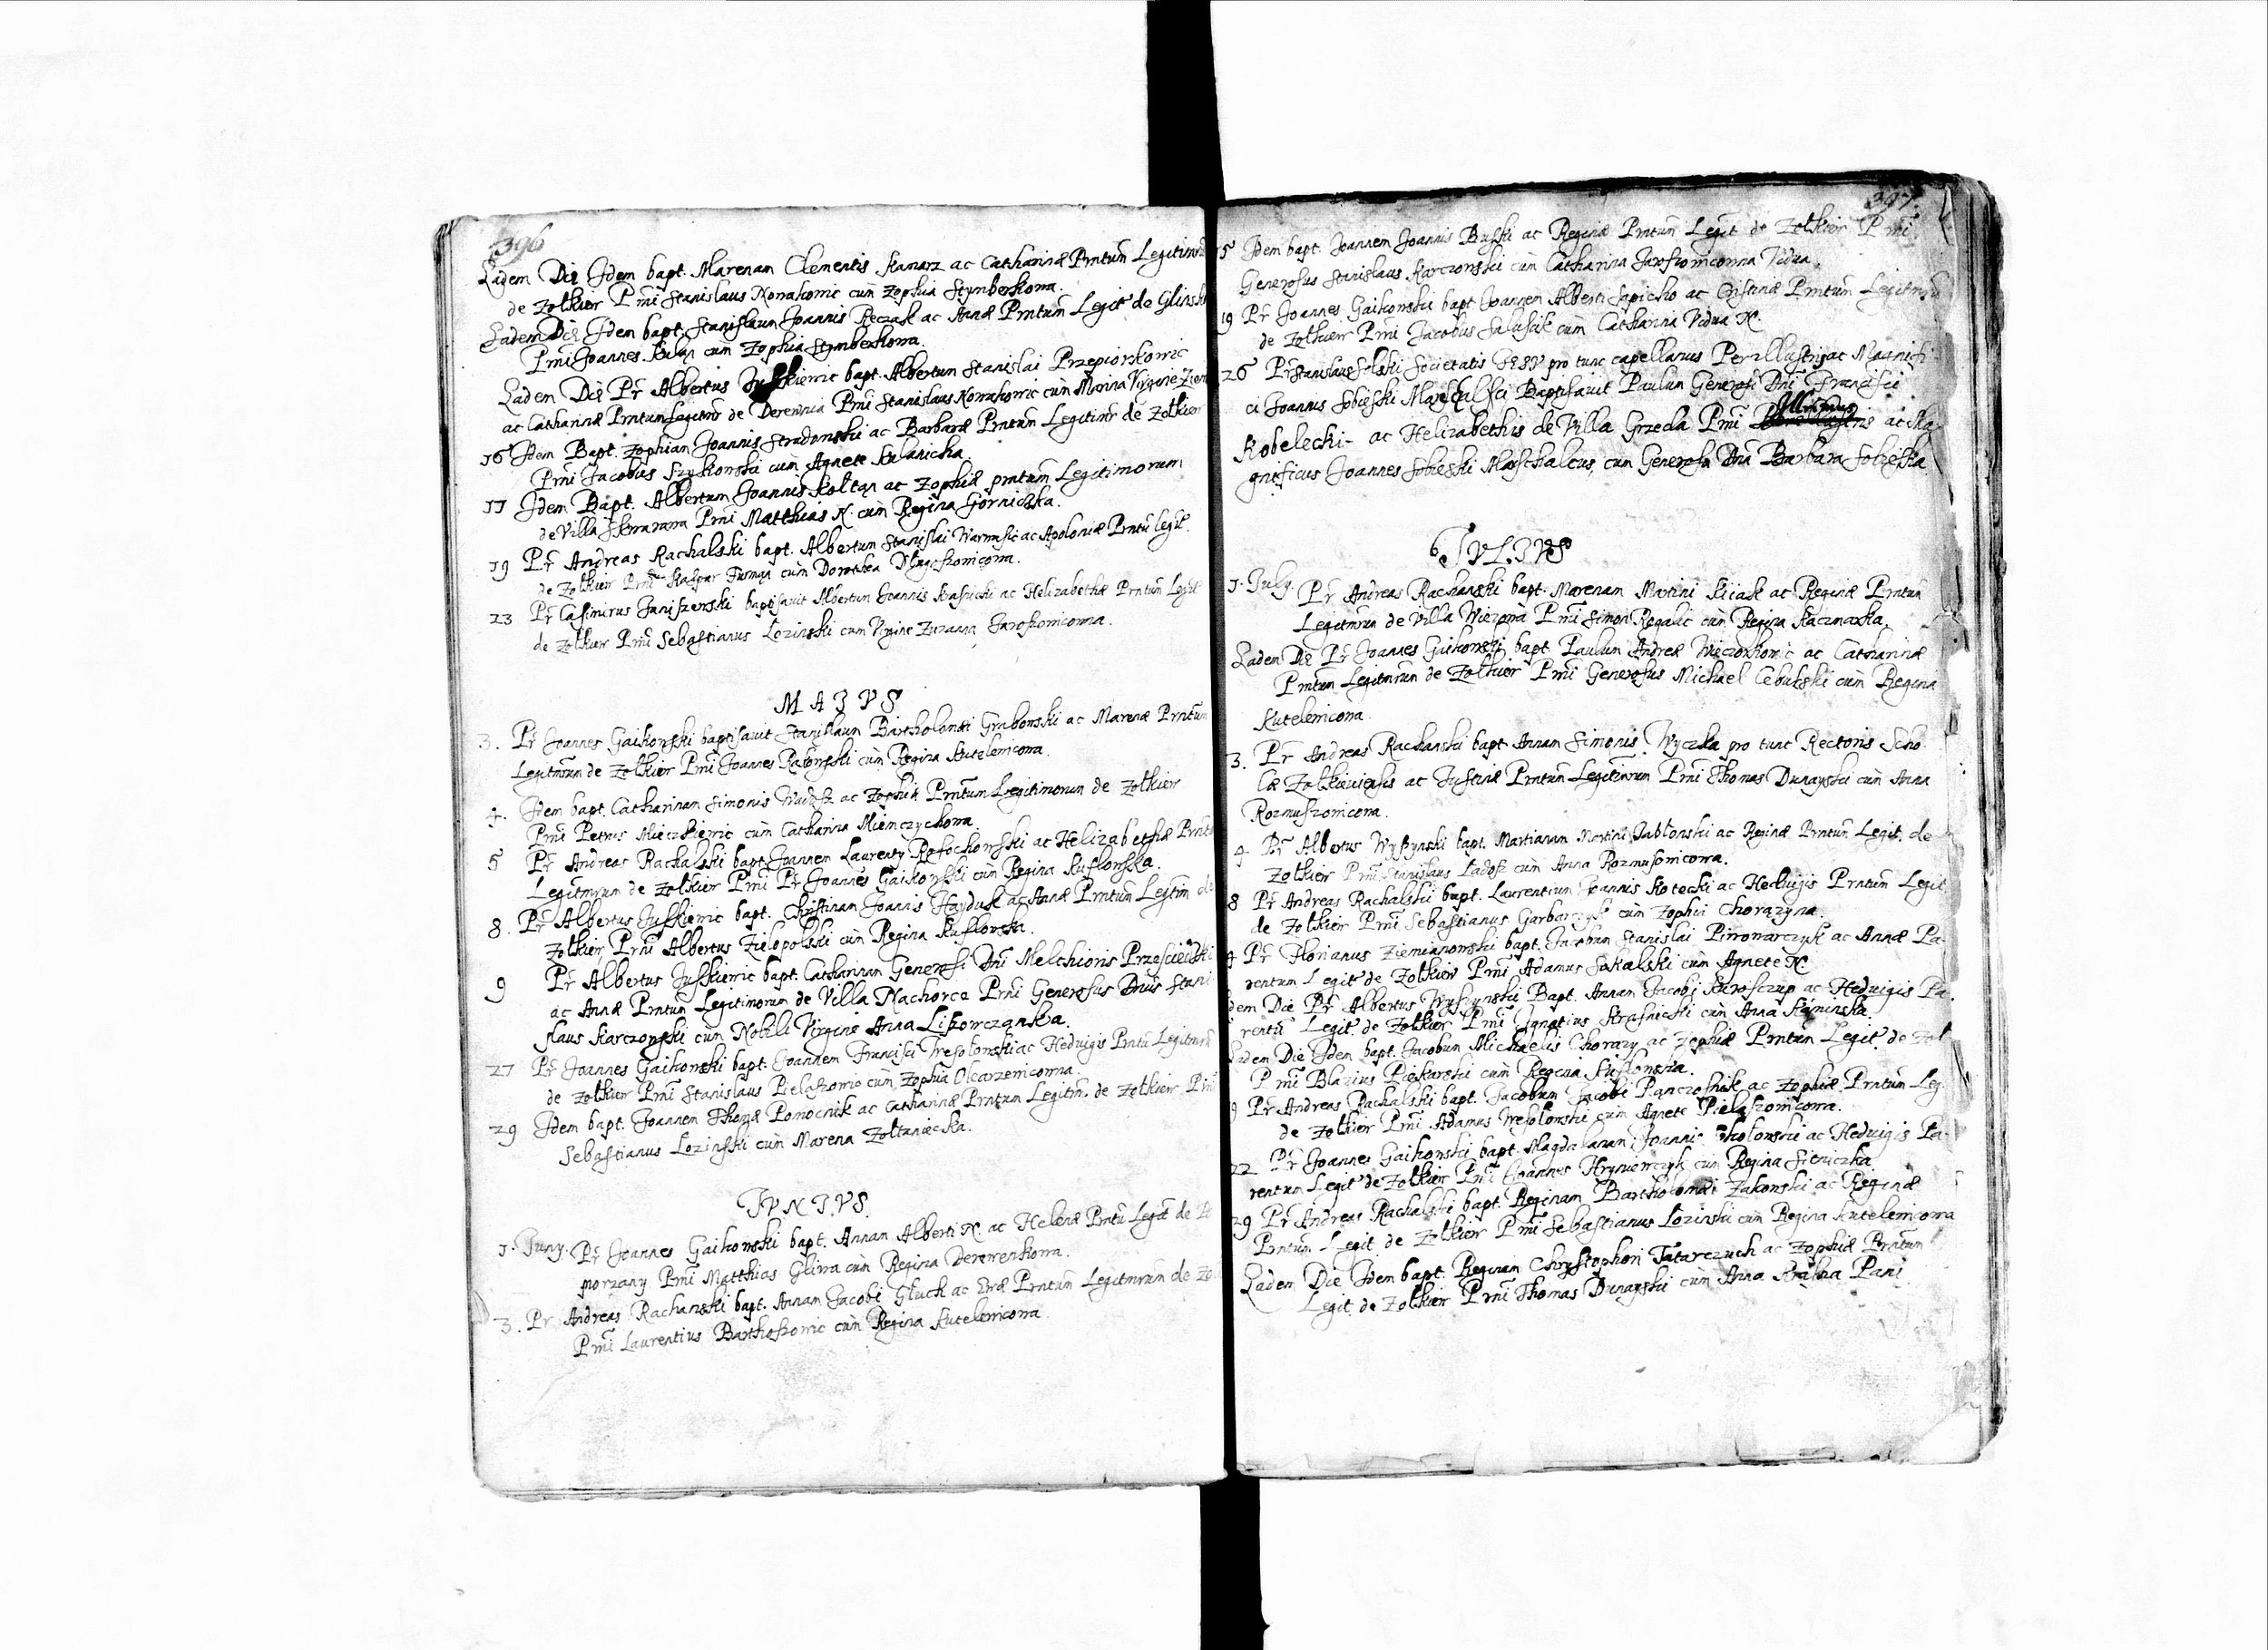 396
Eadem Die Idem bapt. Marenam Clementis Kanarz ac Catharinæ Prntum Legitimoru
de Zolkier Prni Stanislaus Nowakowic cum Zophia Stymberkowa.
Eadem Die Idem bapt. Stanislaum Joannis Reczak ac Annæ Prntum Legit de Glinsk
Prni Joannes Kulan cum Zophia Stymberkowa.
Eadem Die Pr Albertus Juskiewic bapt. Albertum Stanislai Przepiorkowic
ac Catharinæ Prntum Legitmr de Derewnia Prni Stanislaus Nowakowic cum Marina Virgine
16 Idem Bapt. Zophiam Joannis Stradowski ac Barbaræ Prntum Legitimr de Zolkier
Prni Jacobus Szykowski cum Agnete
17 Idem Bapt. Albertum Joannis Koltan ac Zophiæ prntum Legitimorum
de Villa Skwarawa Prni Matthias N. cum Regina Gorniczka.
19 Pr Andreas Rachalski bapt. Albertum Stanislai ac Apoloniæ Prntu legit.
de Zolkier Prni Kaspar Furman cum Dorothea Dlugoszowicowa.
23 Pr Casimirus Janiszewski baptisauit Albertum Joannis Kasnicki ac Helizabethæ Prntum Legit
de Zolkier Prni Sebastianus Lozinski cum Virgine Zuzanna Jaroszowicowna.
MAIVS
3. Pr Joannes Gaikowski baptisauit Stanislaum Bartholomæi Grabowski ac Marenæ Prntum
Legitmrum de Zolkier Prni Joannes Rabowski cum Regina Kutelewicowa.
4. Idem bapt. Catharinam Simonis ac Zophiæ Prntum Legitimorum de Zolkier
Prni Petrus Mieczkiewic cum Catharina Miemczychowa
5 Pr Andreas Rachalski bapt Joannem Laurenty Rosochowski ac Helizabethæ Prntu
Legitmrum de Zolkier Prni Pr Joannes Gaikowski cum Regina Kuflowska.
8. Pr Albertus Juskiewic bapt. Christinam Joannis Hayduk ac Annæ Prntum Legitm de
Zolkier Prni Albertus Zielopolski cum Regina Kuflowski.
9 Pr Albertus Juskiewic bapt. Catharinam Generosi Dni Melchioris
ac Annæ Prntum Legitimorum de Villa Machorce Prni Generosus Dnus Stani
slaus Karczowski cum Nobili Virgine Anna Liszowczanka.
27 Pr Joannes Gaikowski bapt. Joannem Francisci Wesolowski ac Heduigis Prntu Legitmru
de Zolkier Prni Stanislaus Pielaszowic cum Zophia Olearzewicowna.
29 Idem bapt. Joannem Thomæ Pomocnik ac Catharinæ Prntum Legitim. de Zolkier Prni
Sebastianus Lozinski cum Marena Zoltaniecka.
IVNIVS.
1. Juny. Pr Joannes Gaikowski bapt. Annam Alberti N. ac Helenæ Prntu Legit de
morzany Prni Matthias Gliwa cum Regina Derewenkowa.
3. Pr Andreas Rachanski bapt. Annam Jacobi Gluch ac Evæ Prntum Legitmrum de Zo
Prni Laurentius Barthoszowic cum Regina Kutelewicowa
397
15 Idem bapt. Joannem Joannis Buski ac Reginæ Prntum Legit de Zolkier Prni
Generosus Stanislaus Karczowski cum Catharina Jaroszowicowna Vidua.
19 Pr Joannes Gaikowski bapt Joannem Alberti Sapicho ac Cristinæ Prntum Legitmru
de Zolkier Prni Jacobus Saluscik cum Catharina Vidua N.
26 Pr Stanislaus Solski Societatis IESV pro tunc capellanus Perillustris ac Magnifi
ci Joannis Sobieski Marschalci Baptisauit Paulum Generosi Dni Francisci
Kobelecki ac Helizabethis de Villa Grzeda Prni Illrimus ac Ma
gnificus Joannes Sobieski Marschalcus, cum Generosa Dna Barbara Sobieska
IVLIVS
1. July. Pr Andreas Rachanski bapt. Marenam Martini Kiiak ac Reginæ Prntum
Legitmrum de Villa Wiezowa Prni Simon Regalic cum Regina Kaczmarka.
Eadem Die Pr Joannes Gaikowski bapt. Paulum Andreæ Wieczorkowic ac Catharinæ
Prntum Legitmrum de Zolkier Prni Generosus Michael Cebulski cum Regina
Kutelewicowa.
3. Pr Andreas Rachanski bapt Annam Simonis Wyczka pro tunc Rectoris Scho
læ Zolkieviensis ac Justinæ Prntum Legitimrum Prni Thomas Dunayski cum Anna
Rozmuszowicowa.
4 Pr Albertus Wyszynski bapt. Martianam Martini Jablonski ac Reginæ Prntum Legit. de
Zolkier Prni Stanislaus Ladosz cum Anna Rozmusowicowa.
8 Pr Andreas Rachalski bapt. Laurentium Joannis Kotecki ac Heduigis Prntum Legit
de Zolkier Prni Sebastianus Garbarczyk cum Zophia Chorazyna.
9 Pr Florianus Ziemianowski bapt. Jacobum Stanislai Piwowarczyk ac Annæ Pa-
rentum Legit de Zolkier Prni Adamus Sokalski cum Agnete N.
dem Die Pr Albertus Wyszynski Bapt. Annam Jacobi ac Heduigis Pa.
rentu Legit de Zolkier Prni Ignatius Krasnicki cum Anna Kaminska.
Eadem Die Idem bapt. Jacobum Michaelis Chorazy ac Zophiæ Prntum Legit de Zol
Prni Blazius Piekarski cum Regina Kuflowska.
9 Pr Andreas Rachalski bapt. Jacobum Jacobi Panczosnik ac Zophiæ Prntum Leg.
de Zolkier Prni Adamus Wesolowski cum Agnete Pielaszowicowa.
22 Pr Joannes Gaikowski bapt. Magdalenam Joannis ac Heduigis Pa-
rentum Legit de Zolkier Prni Joannes Hryniewczyk cum Regina Sieniczka
29 Pr Andreas Rachalski bapt. Reginam Bartholomæi Zakowski ac Reginæ
Prntum Legit de Zolkier Prni Sebastianus Lozinski cum Regina Kutelewicowa
Eadem Die Idem bapt. Reginam Chrystophori Tatarczuch ac Zophiæ Prntum
Legit. de Zolkier Prni Thomas Dunayski cum Anna Pani